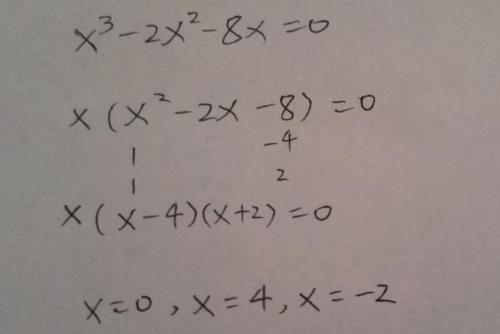 x³-2x²-8x=0
x(x²-2x-8)=0
1 -4
1 2
x(x-4)(x+2)=0
x=0, x=4, x=-2